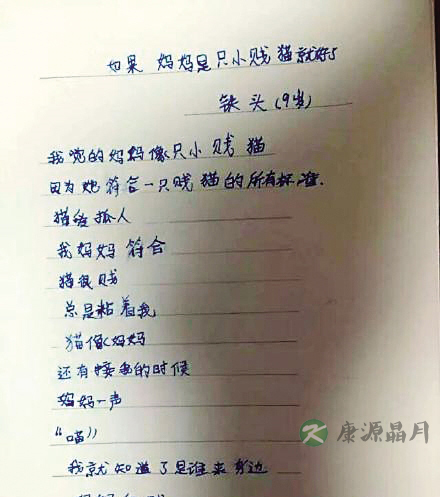 如果 妈妈是只小贱猫就好了
铁头(9岁)
我觉的妈妈像只小贱猫
因为她符合一只贱猫的所有标准.
猫爱抓人
我妈妈符合
猫很贱
总是粘着我
猫像妈妈
还有 的时候
妈妈一声
“喵”
我就知道了是谁来 边
康源晶月